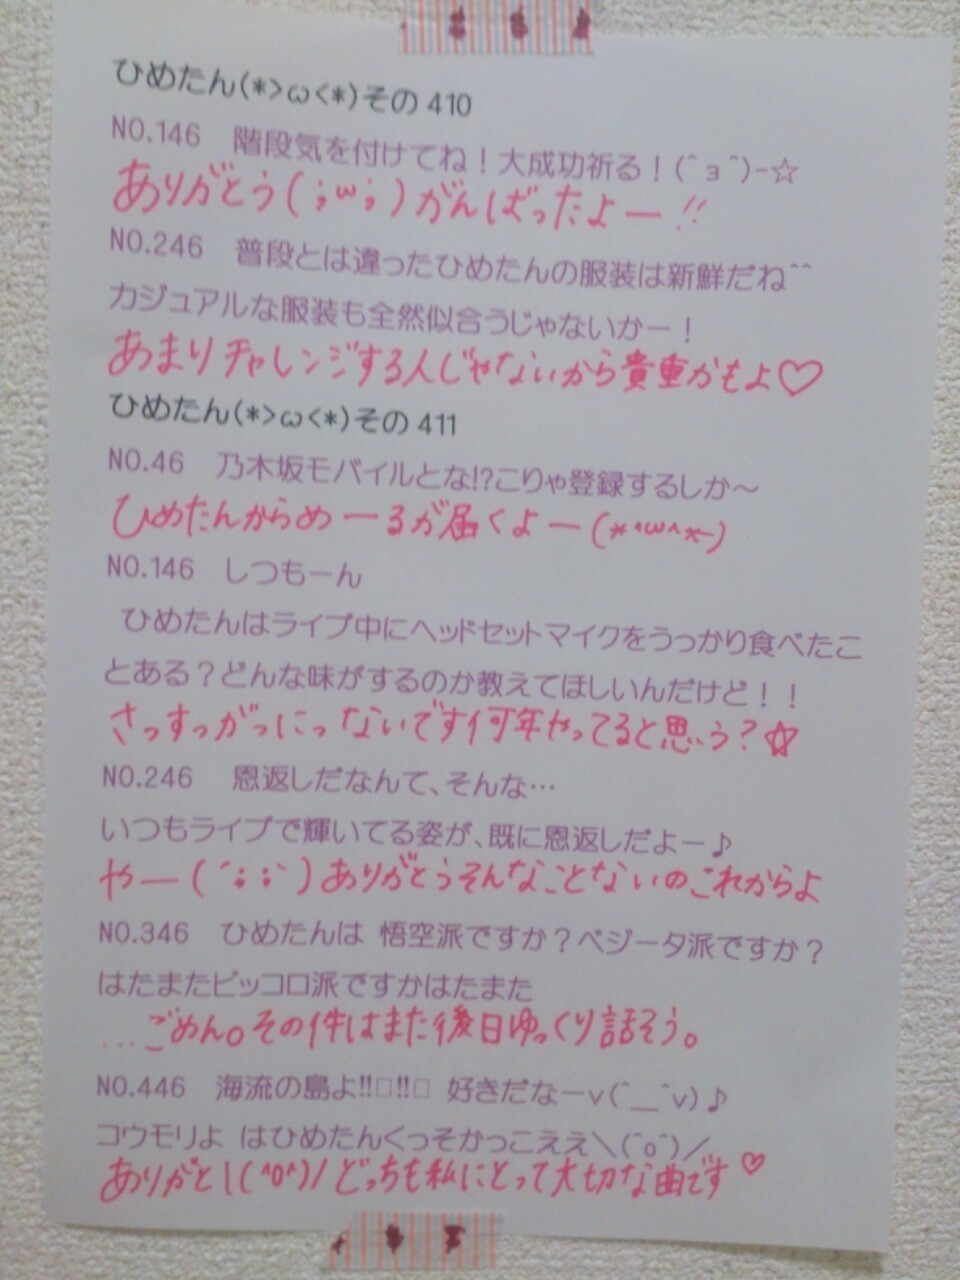 ひめたん(*>ω<*)その410
NO.146 階段気を付けてね！大成功祈る！(＾з＾)-☆
ありがとう(；ω；)がんばったよー!!
NO.246 普段とは違ったひめたんの服装は新鮮だね^^
カジュアルな服装も全然似合うじゃないかー！
あまりチャレンジする人じゃないから貴重かもよ♡
ひめたん(*>ω<*)その411
NO.46 乃木坂モバイルとな!?こりゃ登録するしか〜
ひめたんからめーるが届くよー(*^ω^*)
NO.146 しつもーん
ひめたんはライブ中にヘッドセットマイクをうっかり食べたこ
とある？どんな味がするのか教えてほしいんだけど！！
さっすっがっにっないです何年やってると思う？☆
NO.246 恩返しだなんて、そんな…
いつもライブで輝いてる姿が、既に恩返しだよー♪
やー(´；；｀)ありがとうそんなことないのこれからよ
NO.346 ひめたんは 悟空派ですか？ベジータ派ですか？
はたまたピッコロ派ですかはたまた
…ごめん。その件はまた後日ゆっくり話そう。
NO.446 海流の島よ!!□!!□ 好きだなーv(＾＿＾v)♪
コウモリよ はひめたんくっそかっこええ＼(＾o＾)／
ありがと\(^o^)/どっちも私にとって大切な曲です♡